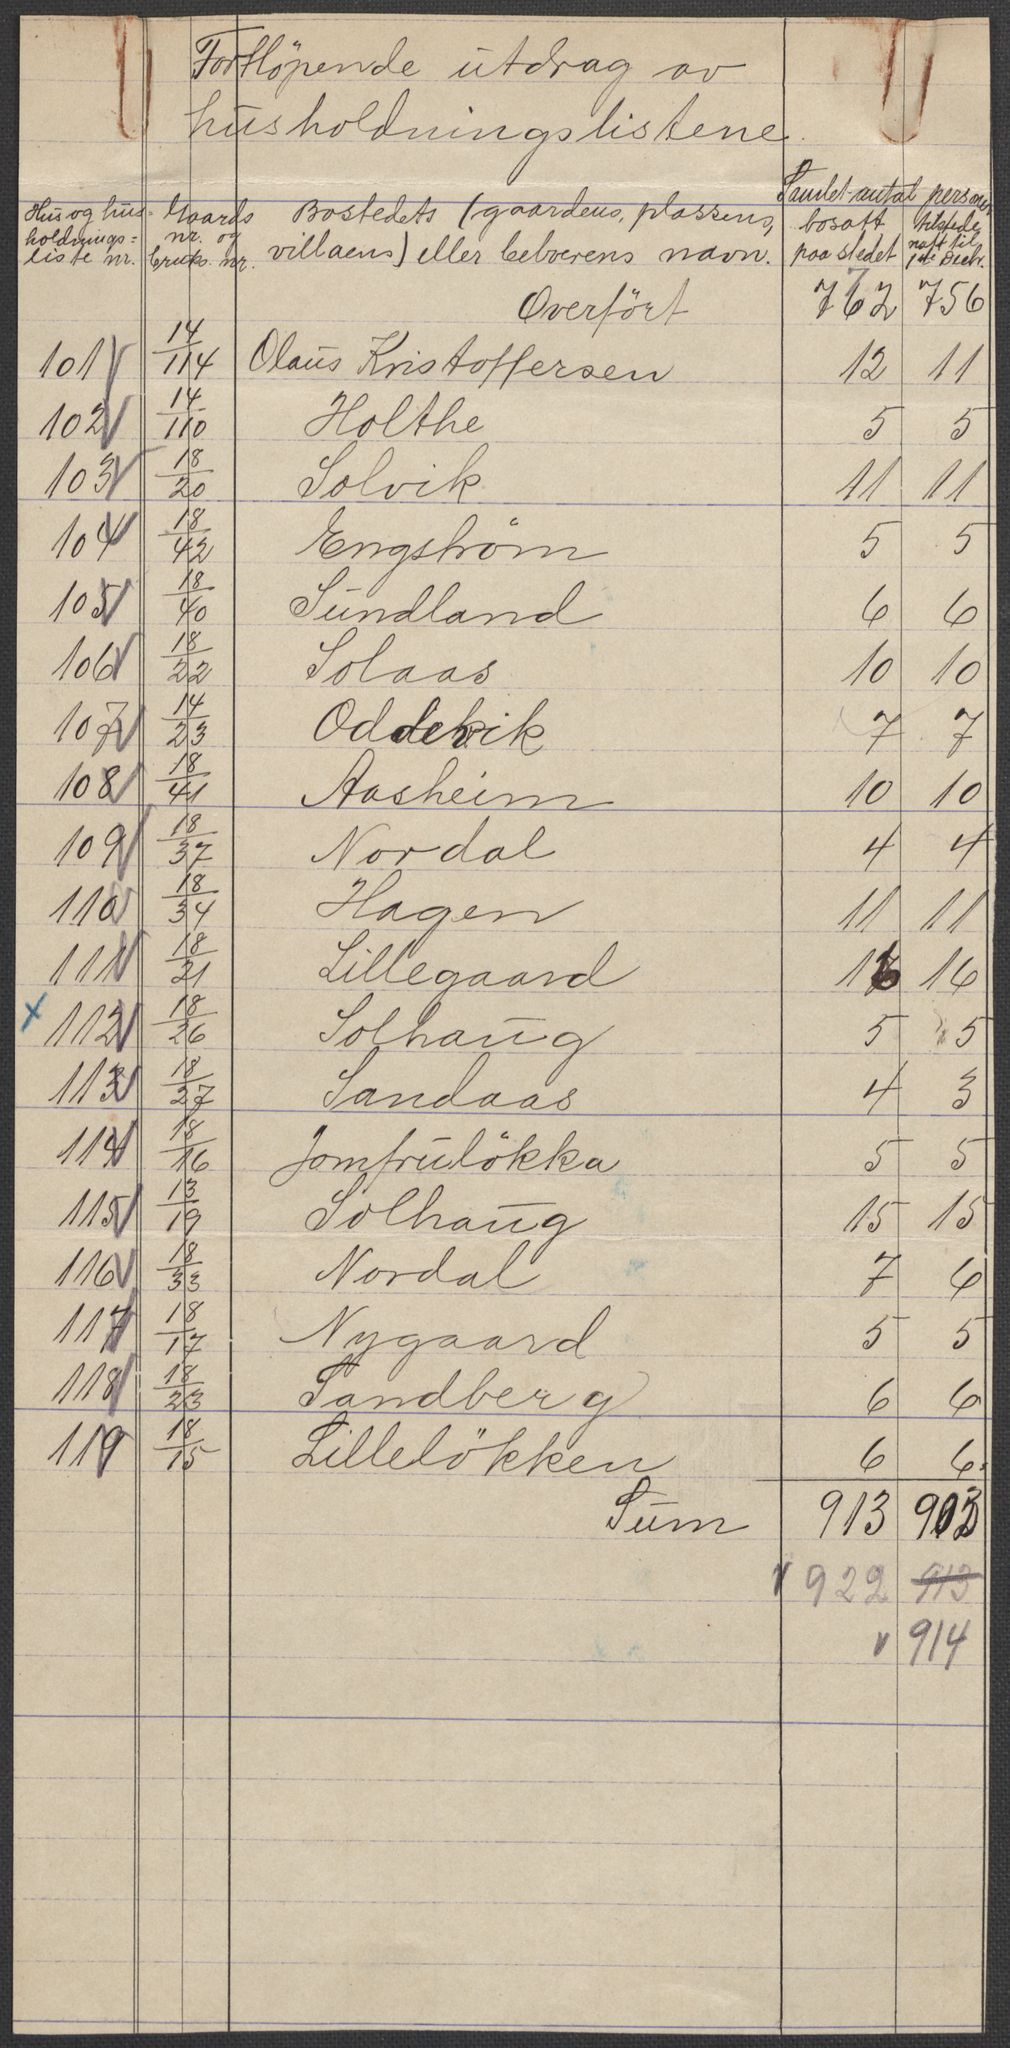 Fortlöpende utdrag av
husholdningslistene.
Hus og hus-holdnings=liste nr. Gaards nr. og bruks. nr. Bostedets (gaardens, plassens, villaens) eller beboerens navn. Samlet antal personer bosatt paa stedet tilstede natt til 1ste Decbr.
Overfört 762 756
101 14/114 Olaus Kristoffersen 12 11
102 14/110 Holthe 5 5
103 18/20 Solvik 11 11
104 18/42 Engström 5 5
105 18/40 Sundland 6 6
106 18/22 Solaas 10 10
107 14/23 Oddevik 7 7
108 18/41 Aasheim 10 10
109 18/37 Nordal 4 4
110 18/34 Hagen 11 11
111 18/21 Lillegaard 16 16
x 112 18/26 Solhaug 5 5
113 18/27 Sandaas 4 3
114 18/16 Jomfrulökka 5 5
115 13/19 Solhaug 15 15
116 18/33 Nordal 7 6
117 18/17 Nygaard 5 5
118 18/23 Sandberg 6 6
119 18/15 Lillelökken 6 6.
Sum 913 903
v 922 913
v 914